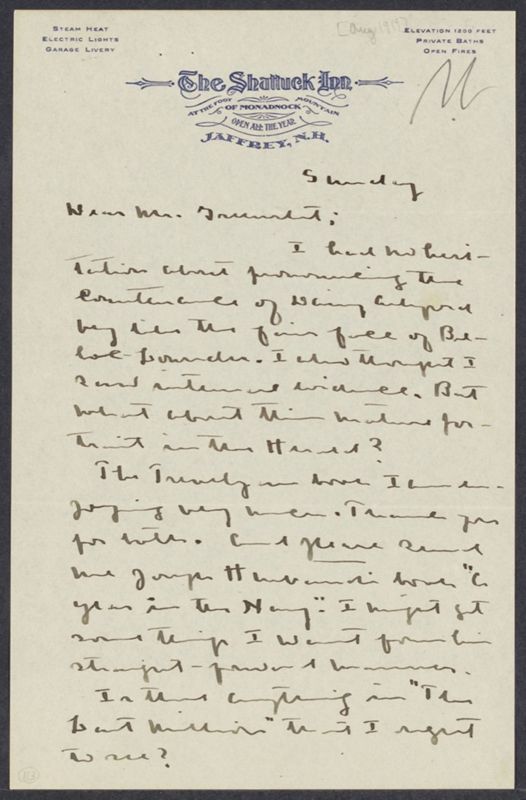 STEAM HEAT
ELECTRIC LIGHTS
GARAGE LIVERY
[Aug 1919?]
ELEVATION 1200 FEET
PRIVATE BATHS
OPEN FIRES
The Shattuck Inn
AT THE FOOT OF MONADNOCK MOUNTAIN
OPEN ALL THE YEAR
JAFFREY, N.H.
Sunday
Dear Mr. Greenslet;
I had no hesi-
tation about pronouncing the
countenance of Daisy Ashford
very like the fair face of Bel-
loc Lowndes. I also thought I
saw internal evidence. But
what about this mature por-
trait in the Herald?
The Trevelyan book I am en-
joying very much. Thank you
for both. And please send
me Joseph Husband's book "A
year in the Navy". I might get
some things I want from his
straight-forward manner.
Is there anything in "The
Last Million" that I ought
to see?